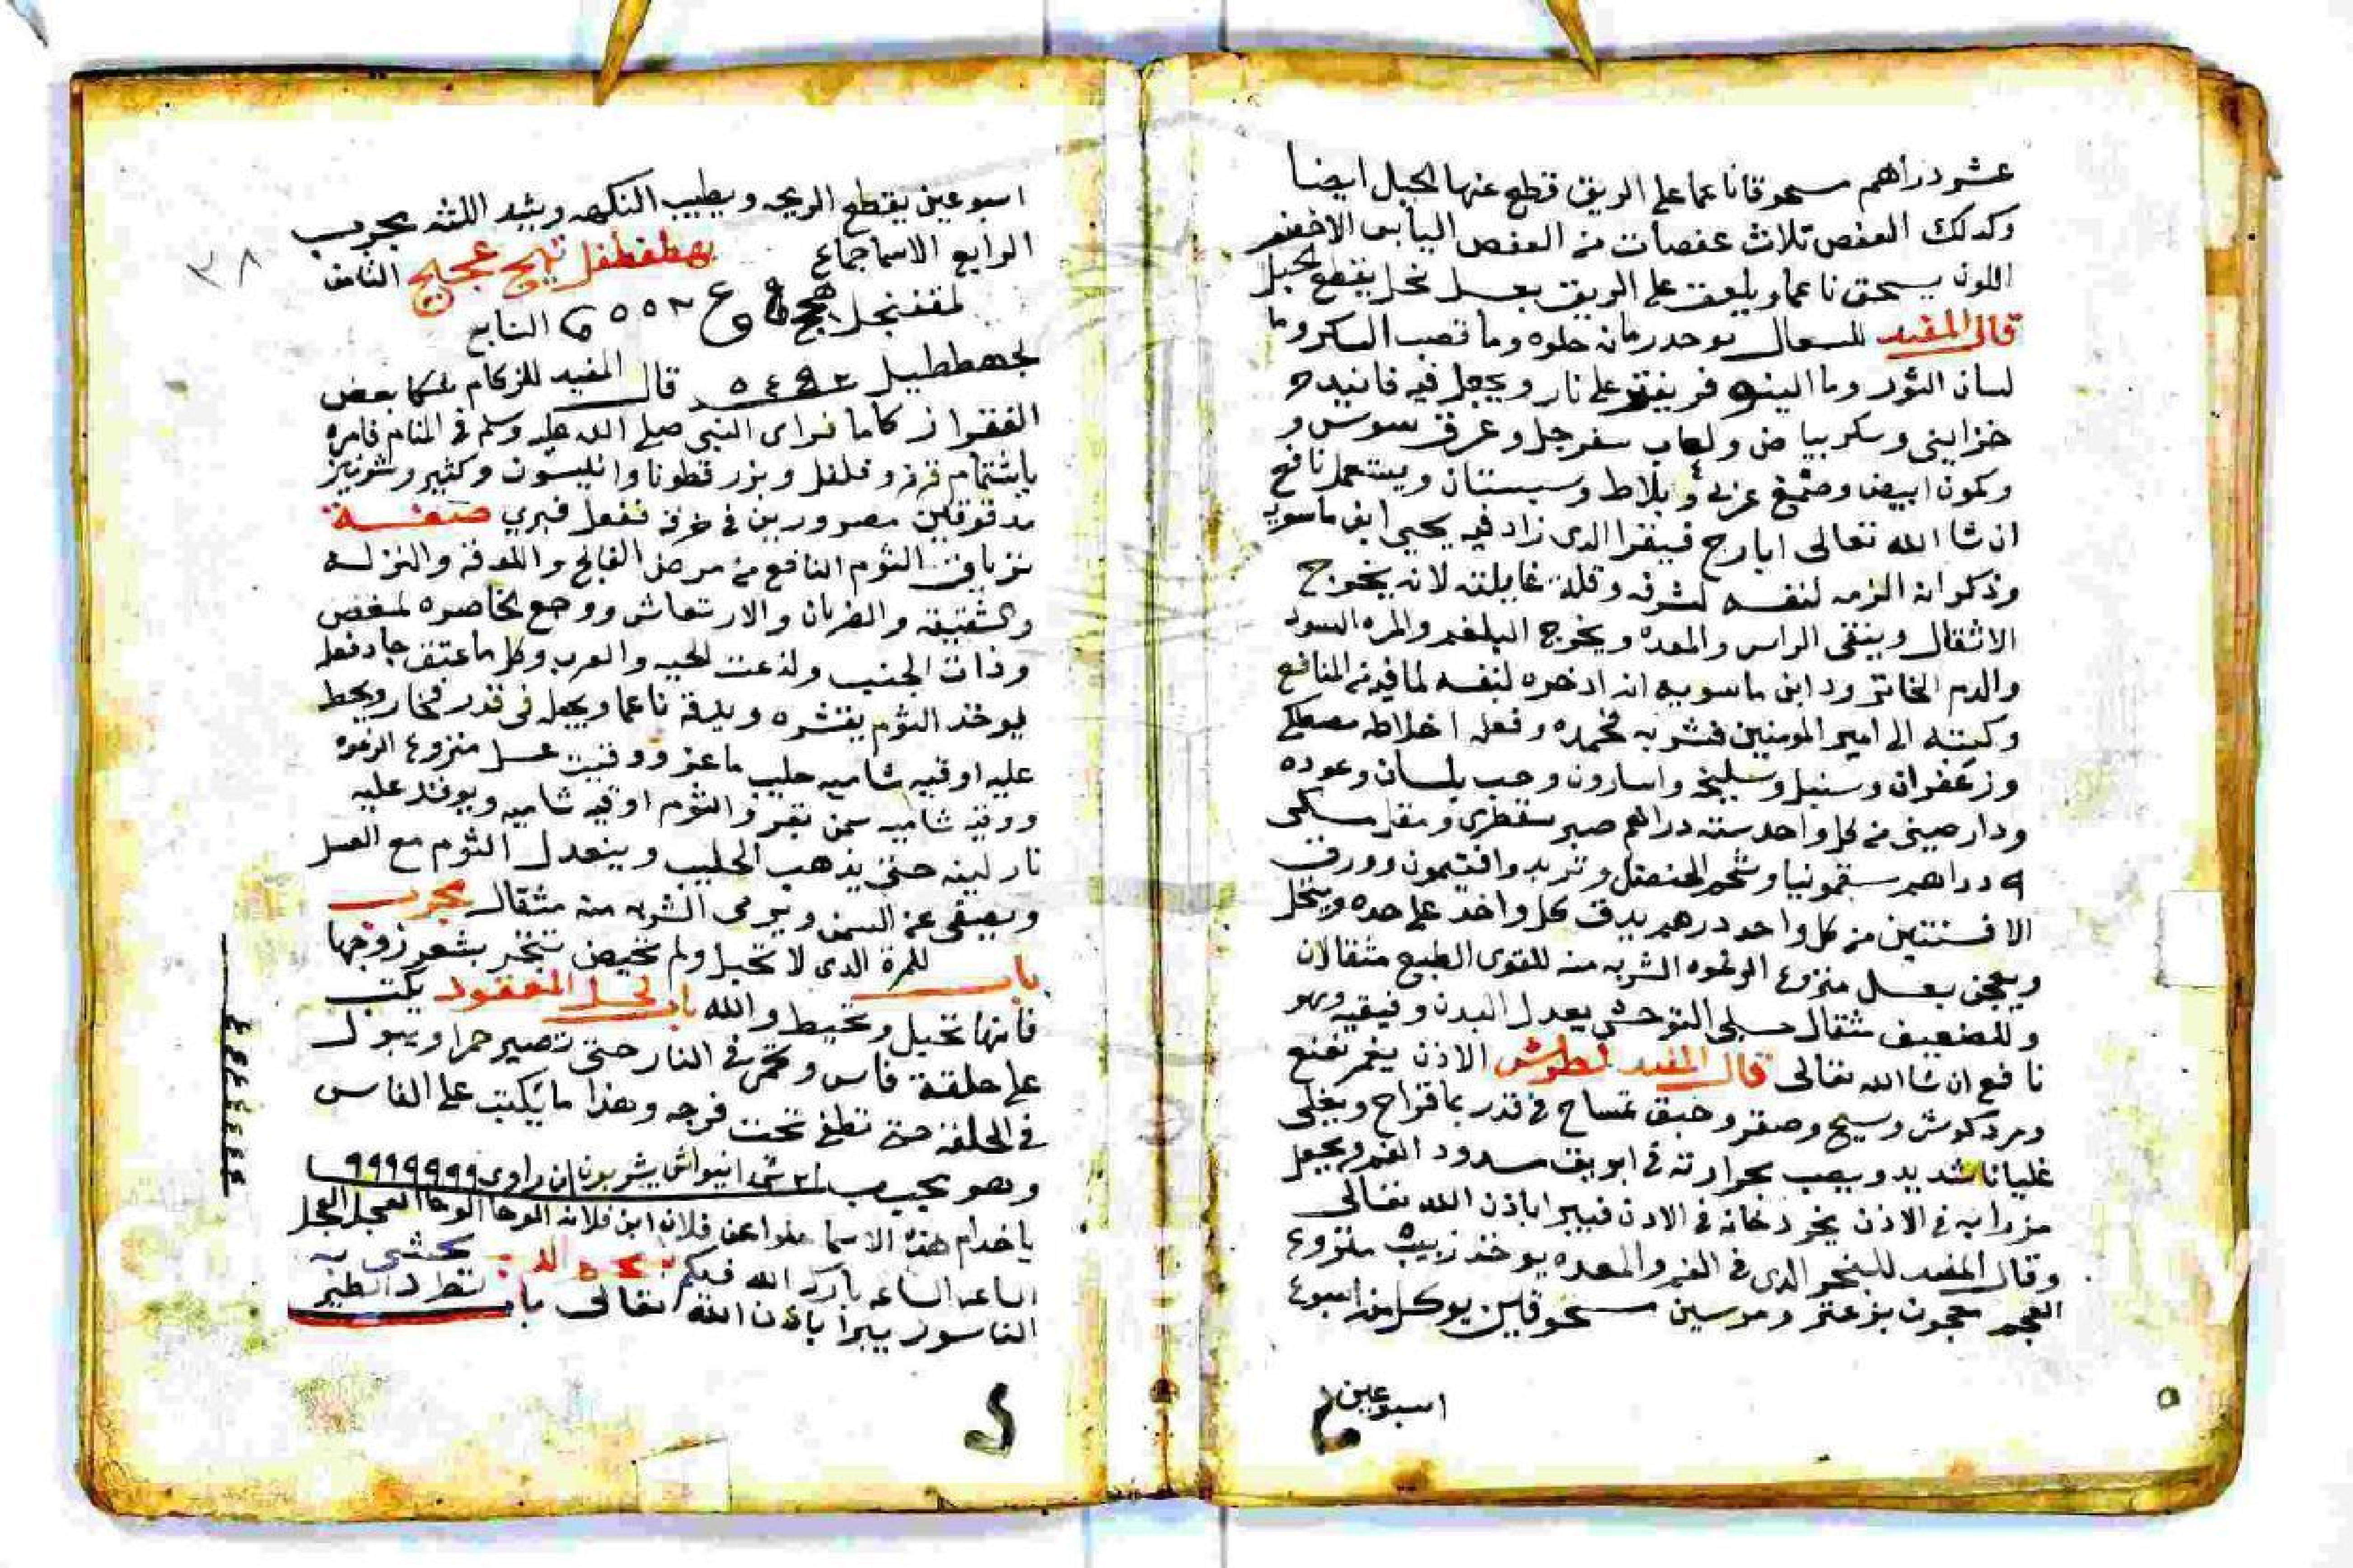 عشر دراهم مسحوقا ناعما على الريق قطع عنها الحبل ايضا
وكدلك العفص ثلاث عفصات من العفص اليابس الاخضر
اللون يسحق ناعما ويلعق على الريق بعسل نحل يقطع الحبل
قال المفيد للسعال يوخد رمان حلوه وما قصب السكر وما
لسان الثور وما على نار ويجعل فيه فانيد
خزايني وسكر بياض ولعاب سفرجل وعرق سوس و
وكمون ابيض وصمغ عربي و بلاط وسبستان ويستعمل نافع
ان شا الله تعالى ايارج فيقرا الدى زاد فيه يحيى ابن ماسويه
وذكر انه الزمه لنفسه لشرفه وقلة غايلته لانه يخرج
الاثقال وينقى الراس والمعده ويخرج البلغم والمره السودا
والدم الخاثر ود ابن ماسويه انه ادخره لنفسه لما فيه من المنافع
وكتبه الى امير المومنين فشربه فحمده وفعله اخلاطه مصطكى
وزعفران وسنبل وسليخه واسارون وحب بلسان وعوده
ودارصينى من كل واحد سته دراهم صبر سقطرى ومقل
٩ دراهم سقمونيا وشحم الحنضل وتربد وافتيمون وورق
الافسنتين من كل واحد درهم يدق كل واخد على حده وينخل
ويعجن بعسل منزوع الرغوه الشربه منه للقوى الطبع مثقالان
وللضعيف مثقال يعدل البدن وفيقيه وهو
نافع ان شا الله تعالى قال المفيد لطرش الاذن
ومردكوش وسيح وصعتر وحبق تمساح فى قدر بما قراح ويغلى
غليانا شديد ويصب بحرارته فى ابريق مسدود الفم ويجعل
مزرابه فى الاذن يخر دخانه فى الادن فيبرا باذن الله تعالى
وقال المفيد للبخر الدى فى الفم والمعده يوخد زبيب منزوع
العجم معجون بزعتر ومرسين مسحوقين يوكل منه اسبوع
اسبوعين
٣٨
اسبوعين يقطع الريحه ويطيب النكهه ويشد اللثه مجرب
الرابع الاسما جماع بهطفطفل الثامن
التابع
لجهططيل قال المفيد للزكام شكا بعض
الفقرا زكاما فراى النبى صلى الله عليه وسلم فى المنام فامره
باشتمام قرنفل وفلفل وبزر قطونا وانيسون وكثير وشونيز
مدقوقين مصرورين فى خرقه ففعل فبري صفة
ترياق الثوم النافع من مرض الفالج واللوقه والنزله
والشقيقة والضربان والارتعاش ووجع الخاصره لمغص
وذات الجنب ولذعت الحيه والعرب وكل ما عتق جاد فعله
يوخذ الثوم يقشره ويدقه ناعما ويجعله فى قدر فخار ويحط
عليه اوقيه شاميه حليب ماعز ووقيت عسل منزوع الرغوه
ووقيه شاميه سمن بقر والثوم اوقيه شاميه ويوقد عليه
نار لينه حتى يذهب الحليب وينعدل الثوم مع العسل
ويصفى عن السمن ويرمى الشربه منه مثقال مجرب
باب للمرة الدى لا تحبل ولم تحيض تتبخر بشعر زوجها
فانها تحبل وتحيط والله باب لحل المعقود يكتب
على حلقة فاس وتحمى فى النار حتى تصير حمرا ويبول
فى الحلقه حتى تطفى تحت فرجه وهذا ما يكتب على الفاس
وهو يجيب ٩٩٩٩٩٩٩
يا خدام هذه الاسما حلوا عن فلان ابن فلانه الوحا الوحا العجل العجل
الساعه الساعه بارك الله فيكم يحشى به
الناسور يبرا باذن الله تعالى باب تطرد الطير